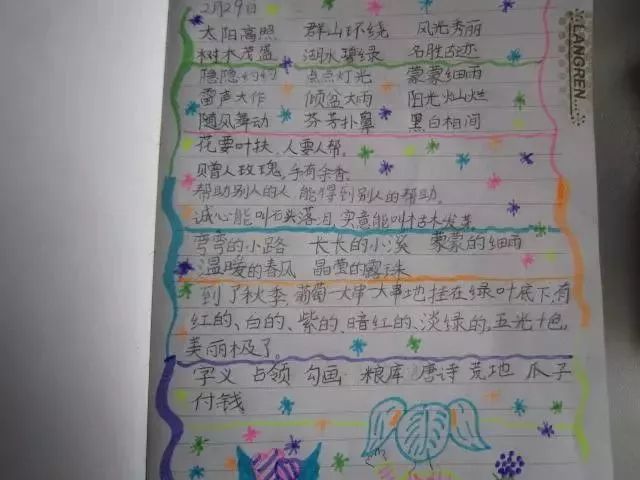 2月29日
太阳高照 群山环绕 风光秀丽
树木茂盛 湖水碧绿 名胜古迹
隐隐约约 点点灯光 蒙蒙细雨
雷声大作 倾盆大雨 阳光灿烂
随风舞动 芬芳扑鼻 黑白相间
花要叶扶、人要人帮。
赠人玫瑰,手有余香。
帮助别人的人,能得到别人的帮助。
诚心能叫石头落泪,实意能叫枯木发芽。
弯弯的小路 长长的小溪 蒙蒙的细雨
温暖的春风 晶莹的露珠
到了秋季,葡萄一大串一大串地挂在绿叶底下,有
红的、白的、紫的、暗红的、淡绿的,五光十色,
美丽极了。
字义 占领 勾画 粮库 唐诗 荒地 爪子
付钱
LANGREN...